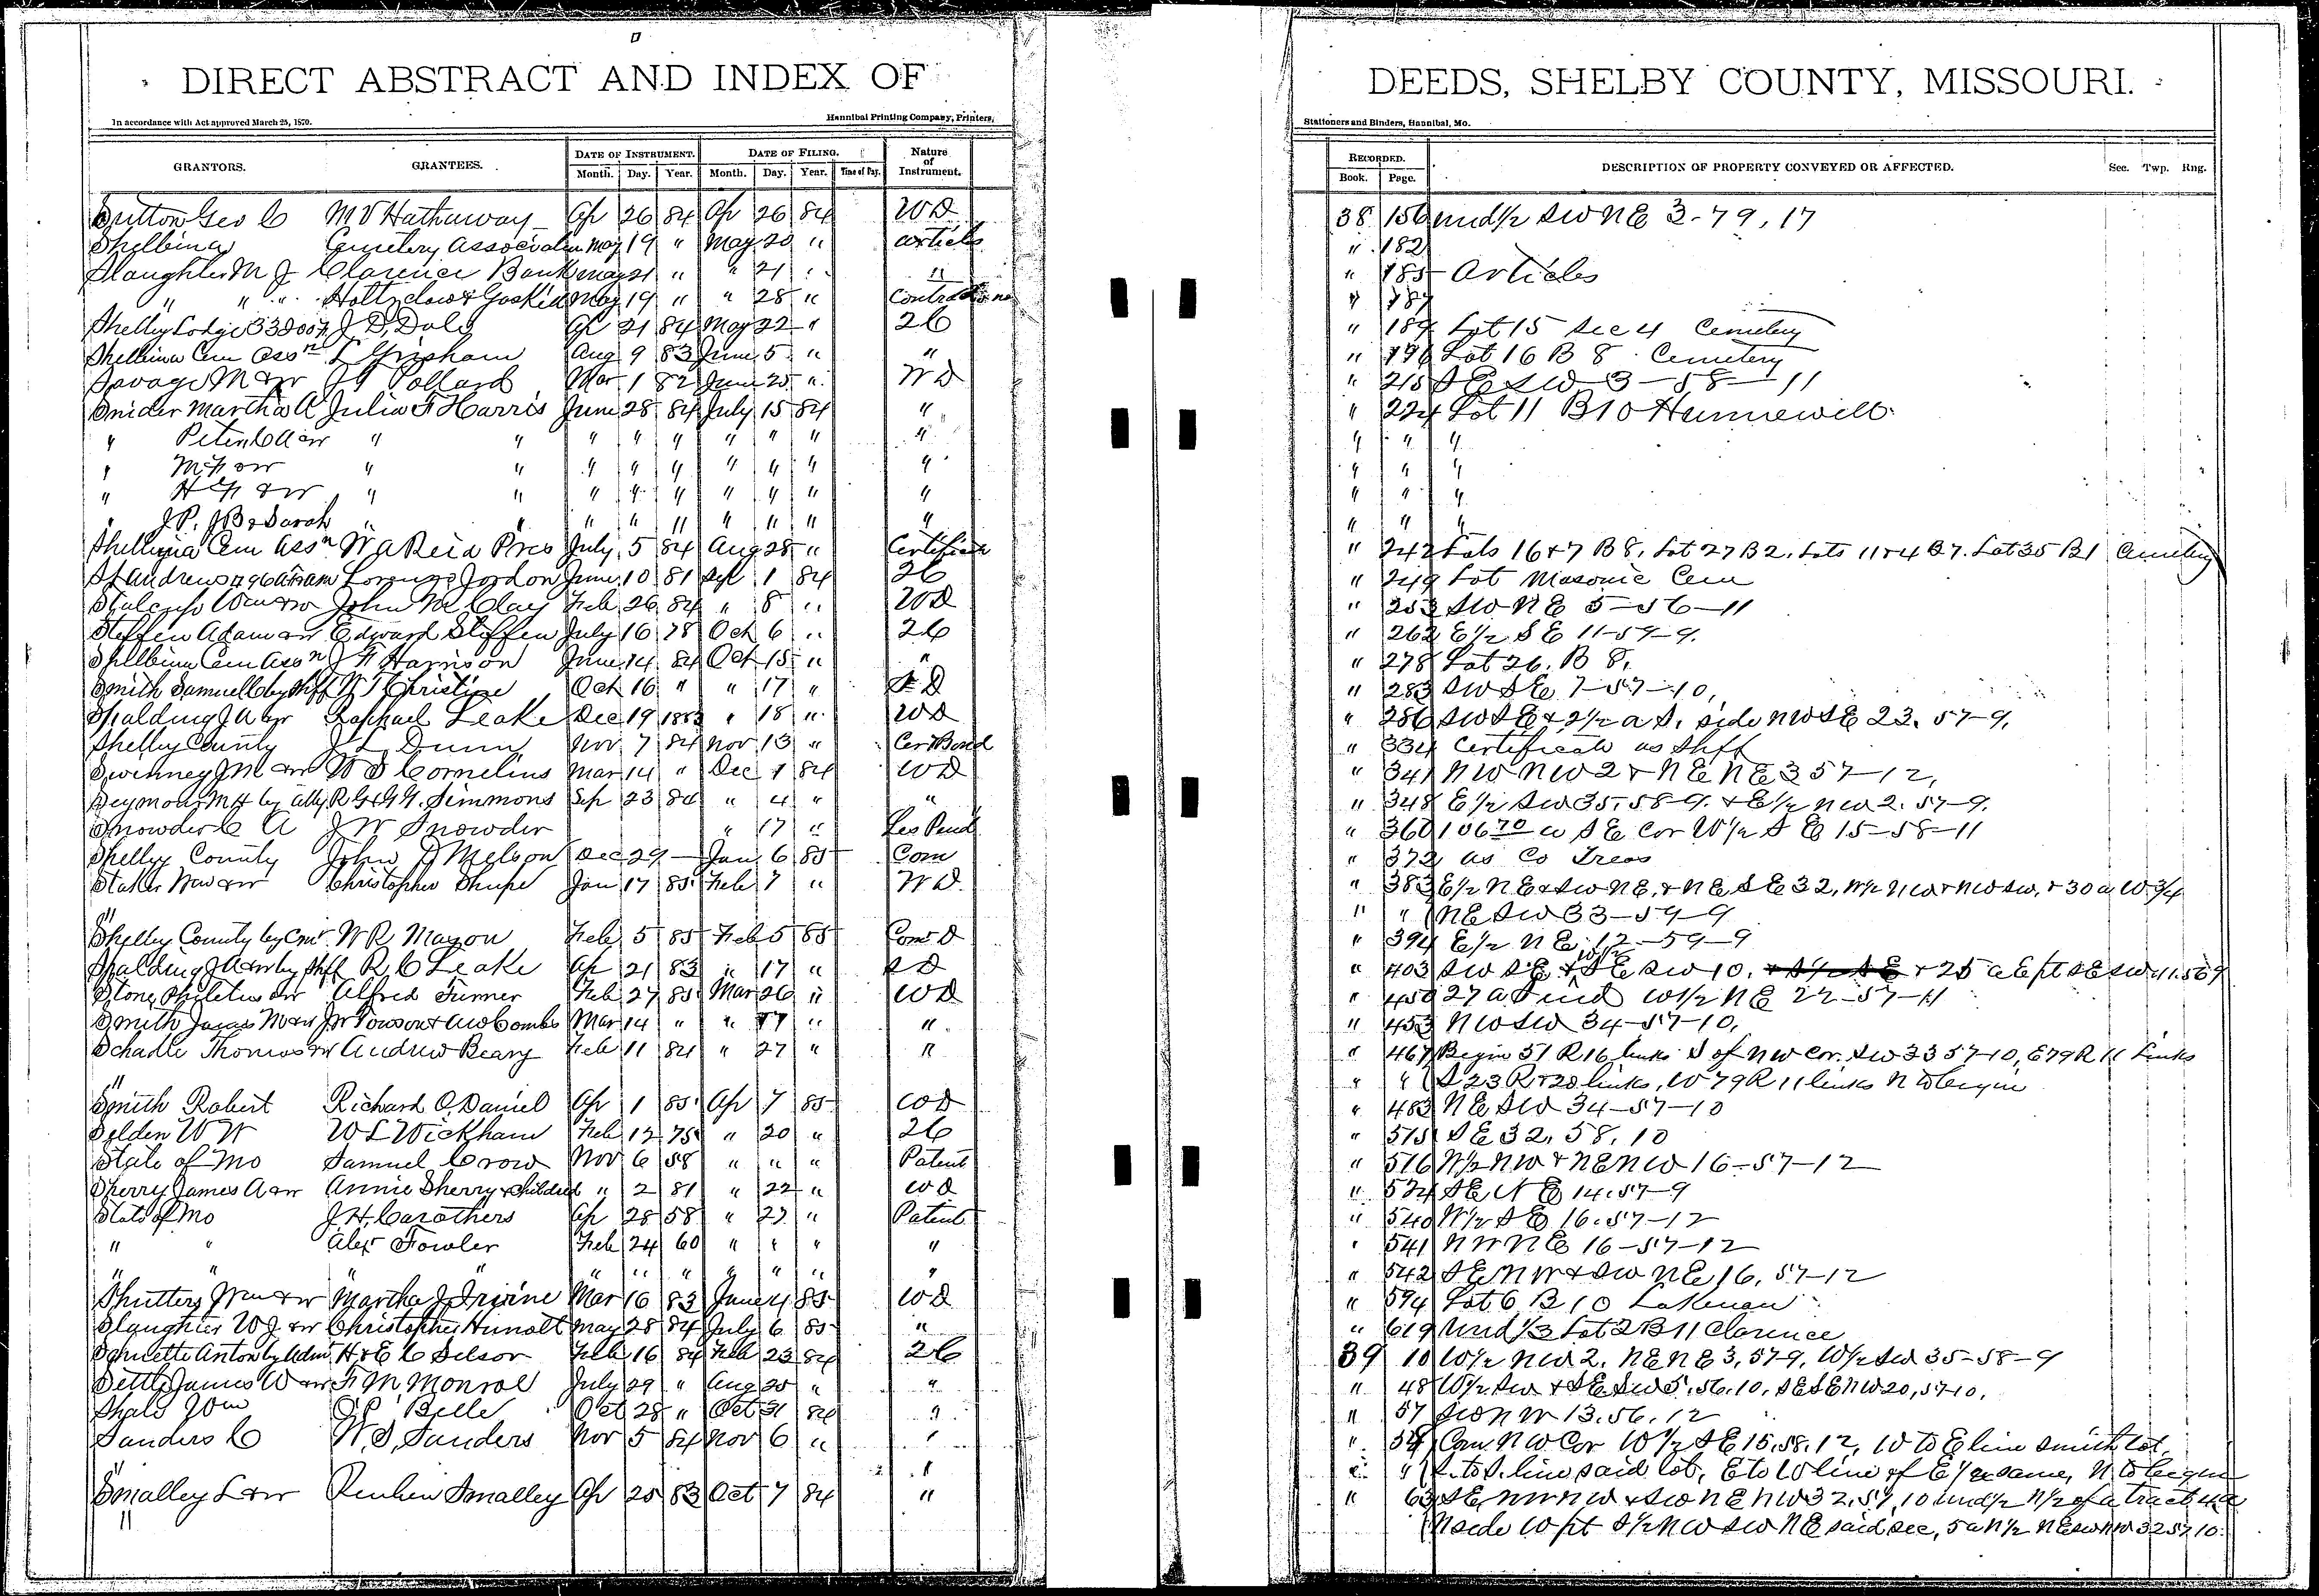 DIRECT ABSTRACT AND INDEX OF DEEDS, SHELBY COUNTY, MISSOURI.
In accordance with Act approved March 25, 1870. Hannibal Printing Company, Printers, Stationers and Binders, Hannibal, Mo.
GRANTORS. GRANTEES. DATE OF INSTRUMENT. DATE OF FILING. Nature of Instrument. RECORDED. DESCRIPTION OF PROPERTY CONVEYED OR AFFECTED. Sec. Twp. Rng.
Month. Day. Year. Month. Day. Year. Time of Day. Book. Page.
Sutton Geo C M V Hathaway Ap 26 84 Ap 26 84 WD 38 156 und 1/2 SW NE 3-79, 17
Shelbina Cemetery Association May 19 " May 20 " articles " 182
Slaughter M J Clarence Bank May 21 " " 21 " " " 185 Articles
" " " Holtzclaw & Gaskin May 19 " " 28 " " 187
Shelby Lodge J D Dale Ap 21 84 May 22 " 26 " 189 Lot 15 Sec 4 Cemetery
Shelbina Cem Assn L Grisham Aug 9 83 June 5 " " " 196 Lot 16 B 8 Cemetery
Savage M & w Pollard Mar 1 82 June 25 " WD " 215 SE SW 3-58-11
Snider Martha A Julia F Harris June 28 84 July 15 84 " " 224 Lot 11 B 10 Hunnewell
" " " " " " " " " " " " " "
" M F & w " " " " " " " " " " " "
" H F & w " " " " " " " " " " " "
" J P. J B & Sarah " " " " " " " " " " " "
Shelbina Cem Assn W A Reid Pres July 5 84 Aug 28 " Certificate " 242 Lots 16 & 7 B 8, Lot 27 B 2, Lots 11 & 4 B 7. Lot 35 B 1 Cemetery
St Andrews Lorenzo Jordon June 10 81 Sept 1 84 26 " 249 Lot Masonic Cem
Stalcup Wm & w John M Clay Feb 26 84 " 8 " WD " 253 SW NE 5-56-11
Steffen Adam & w Edward Steffen July 16 78 Oct 6 " 26 " 262 E 1/2 SE 11-59-9.
Shelbina Cem Assn J F Harrison June 14 84 Oct 15 " " " 278 Lot 26. B 8.
Smith Samuel C by Shff W T Christine Oct 16 " " 17 " SD " 283 SW SE 7-57-10,
Spalding J A & w Raphael Leake Dec 19 1883 " 18 " WD " 286 SW SE & 2 1/2 a S. side NW SE 23. 57-9,
Shelby County J L Dunn Nov 7 84 Nov 13 " Cer Bond " 334 Certificate as Shff
Swinney J M & w W S Cornelius Mar 14 " Dec 1 84 WD " 341 NW NW 2 & NE NE 3 57-12,
Seymour M H by atty R G & G G. Simmons Sep 23 84 " 4 " " " 348 E 1/2 SW 35. 58-9. & E 1/2 NW 2. 57-9.
Snowder C A J W Snowder " 17 " Les Pend " 360 SE Cor W 1/2 SE 15-58-11
Shelby County John D Melson Dec 29 — Jan 6 85 Com " 372 as Co Treas
Staker & w Christopher Shupe Jan 17 85 Feb 7 " WD " 383 E 1/2 NE & SW NE, & NE SE 32, W 1/2 NW & NW SW, & 30 a W 3/4
" " " NE SW 33-59-9
Shelby County by Comr W R Mayon Feb 5 85 Feb 5 85 Com D " 394 E 1/2 NE 12-59-9
Spalding J A & w by Shff R C Leake Ap 21 83 " 17 " SD " 403 SW SE & SE SW 10. & 25 a E pt SE SW 11. 56 9
Stone Philetus & w Alfred Turner Feb 27 85 Mar 26 " WD " 450 27 a W 1/2 NE 22-57-11
Smith James M & w J W Towson & A W Combs Mar 14 " " 17 " " " 453 NW SW 34-57-10,
Schadle Thomas & w Andrew Beary Feb 11 84 " 27 " " " 467 Begin 51 R 16 links S of NW cor. SW 33 57-10, E 79 R 11 Links
" " " S 23 R & 20 links, W 79 R 11 links N to begin
Smith Robert Richard O. Daniel Ap 1 85 Ap 7 85 WD " 483 NE SW 34-57-10
Selden W W W L Wickham Feb 12 75 " 20 " 26 " 515 SE 32. 58. 10
State of Mo Samuel Crow Nov 6 58 " " " Patent " 516 W 1/2 NW & NE NW 16-57-12
Sherry James A & w Annie Sherry & Children " 2 81 " 22 " WD " 524 SE NE 14. 57-9
State of Mo J. H. Carothers Ap 28 58 " 27 " Patent " 540 W 1/2 SE 16. 57-12
" " Alex Fowler Feb 24 60 " " " " " 541 NW NE 16-57-12
" " " " " " " " " " " " 542 SE NW & SW NE 16, 57-12
Shutters Wm & w Martha J Irvine Mar 16 83 June 4 85 WD " 594 Lot 6 B 10 Lakenan
Slaughter W J & w Christopher Hunolt May 28 84 July 6 85 " " 619 Und 1/3 Lot 2 B 11 Clarence
Schuette Anton by Adm H & E C Selsor Feb 16 84 Feb 23 84 26 39 10 W 1/2 NW 2. NE NE 3, 57-9, W 1/2 SW 35-58-9
Settle James W & w F M Monroe July 29 " Aug 25 " " " 48 W 1/2 SW & SE SW 5. 56. 10, SE SE NW 20, 57-10,
Shale Wm Belle Oct 28 " Oct 31 84 " " 57 SW NW 13. 56. 12
Sanders C W. S. Sanders Nov 5 84 Nov 6 " " " 58 Com. NW Cor W 1/2 SE 15. 58. 12, W to E line Smith lot,
" " " " S. to S. line said lot, E to W line of E 1/2 same, N to begin
Smalley L & w Reuben Smalley Ap 25 83 Oct 7 84 " " 63 SE NW NW & SW NE NW 32. 57. 10 und 1/2 N 1/2 of a tract 4 a
" N side W pt S 1/2 NW SW NE said sec, 5 a N 1/2 NE SW NW 32 57 10.